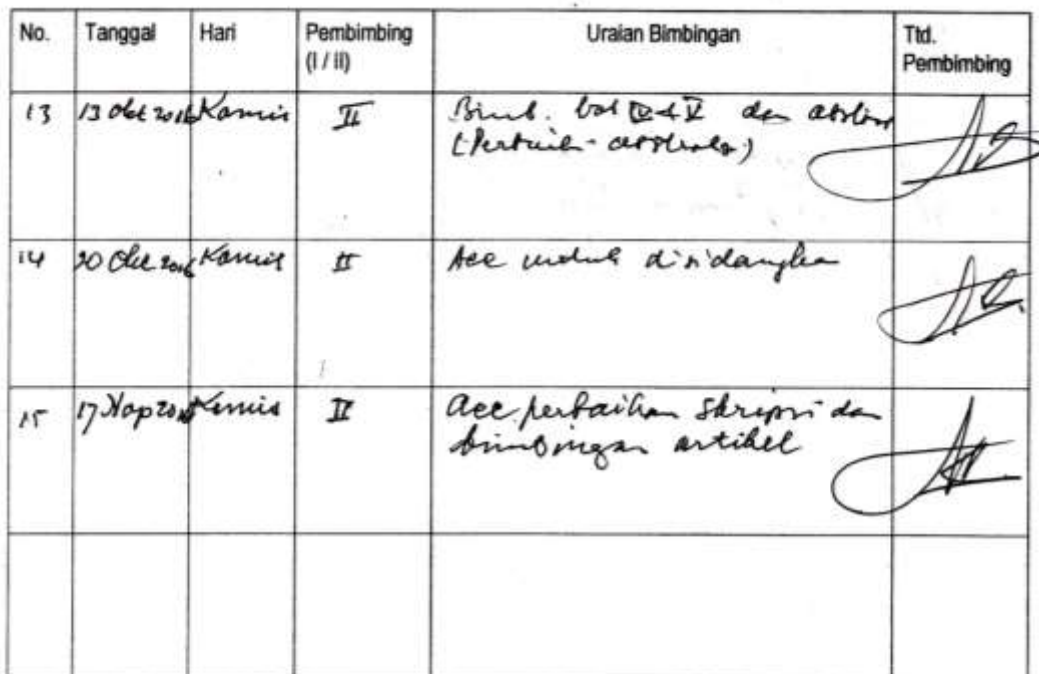 No. Tanggal Hari Pembimbing (I / II) Uraian Bimbingan Ttd. Pembimbing
13 13 Okt 2016 Kamis II Bimb. bab IV & V dan abstrak
(Perbaiki - abstraknya)
14 20 Okt 2016 Kamis II Acc untuk disidangkan
15 17 Nop 2016 Kamis II acc perbaikan skripsi dan
bimbingan artikel